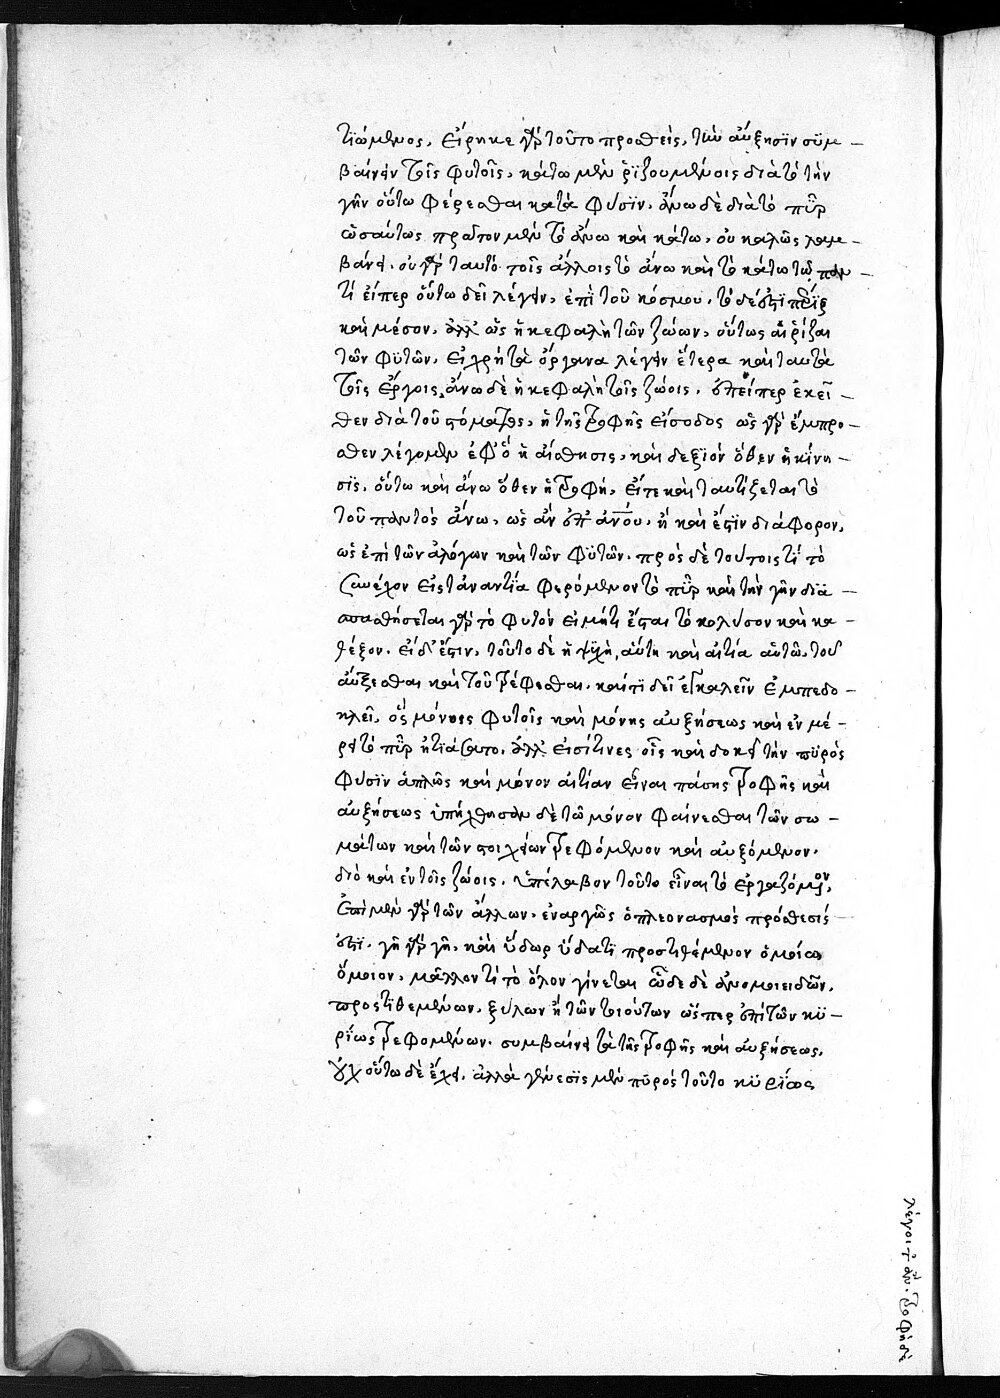 τιώμενος. εἴρηκε γὰρ τοῦτο προσθεὶς, τὴν αὔξησιν συμ-
βαίνειν τοῖς φυτοῖς, κάτω μὲν ῥιζουμένοις διὰ τὸ τὴν
γῆν οὕτω φέρεσθαι κατὰ φύσιν. ἄνω δὲ διὰ τὸ πῦρ
ὡσαύτως πρῶτον μὲν τὸ ἄνω καὶ κάτω, οὐ καλῶς λαμ-
βάνει. οὐ γὰρ ταυτὸ τοῖς ἄλλοις τὸ ἄνω καὶ τὸ κάτω τῷ παν-
τὶ εἴπερ οὕτω δεῖ λέγειν, ἐπὶ τοῦ κόσμου. τὸ δέ ἐστι πέριξ
καὶ μέσον. ἀλλ' ὡς ἡ κεφαλὴ τῶν ζώων, οὕτως αἱ ῥίζαι
τῶν φυτῶν. εἰ χρὴ τὰ ὄργανα λέγειν ἕτερα καὶ ταυτὰ
τοῖς ἔργοις. ἄνω δὲ ἡ κεφαλὴ τοῖς ζώοις. ἐπείπερ ἐκεῖ-
θεν διὰ τοῦ στόματος, ἡ τῆς τροφῆς εἴσοδος ὡς γὰρ ἔμπρο-
σθεν λέγομεν ἐφ' ὃ ἡ αἴσθησις, καὶ δεξιὸν ὅθεν ἡ κίνη-
σις. οὕτω καὶ ἄνω ὅθεν ἡ τροφή. εἴτε καὶ ταυτίζεται τὸ
τοῦ παντὸς ἄνω, ὡς ἂν ἐπ' ἀνου. ἢ καὶ ἔστιν διάφορον,
ὡς ἐπὶ τῶν ἀλόγων καὶ τῶν φυτῶν. πρὸς δὲ τούτοις τί τὸ
συνέχον εἰς τἀναντία φερόμενον τὸ πῦρ καὶ τὴν γῆν δια-
σπασθήσεται γὰρ τὸ φυτὸν εἰ μήτι ἔσται τὸ κολύσον καὶ κα-
θέξον. εἰ δ' ἔστιν, τοῦτο δὲ ἡ ψυχὴ, αὕτη καὶ αἰτία αὐτῶ. τοῦ
αὔξεσθαι καὶ τοῦ τρέφεσθαι. καί τι δεῖ ἐγκαλεῖν ἐμπεδο-
κλεῖ, ὃς μόνοις φυτοῖς καὶ μόνης αὐξήσεως καὶ ἐν μέ-
ρει τὸ πῦρ ἠτιάσατο. ἀλλ' εἰσί τινες οἷς καὶ δοκεῖ τὴν πυρὸς
φύσιν ἁπλῶς καὶ μόνον αἰτίαν εἶναι πάσης τροφῆς καὶ
αὐξήσεως ὑπήχθησαν δὲ τῶ μόνον φαίνεσθαι τῶν σω-
μάτων καὶ τῶν στοιχείων τρεφόμενον καὶ αὐξόμενον.
διὸ καὶ ἐν τοῖς ζώοις. ὑπέλαβον τοῦτο εἶναι τὸ ἐργαζόμενον.
ἐπὶ μὲν γὰρ τῶν ἄλλων. ἐναργῶς ὁ πλεονασμὸς πρόσθεσίς
ἐστι. γῆ γὰρ γῆ, καὶ ὕδωρ ὕδατι προστιθέμενον ὁμοίω
ὅμοιον. μᾶλλόν τι τὸ ὅλον γίνεται ὧδε δὲ ἀνομοιειδῶν,
προστιθεμένων. ξύλων ἢ τῶν τοιούτων ὥσπερ ἐπὶ τῶν κυ-
ρίως τρεφομένων. συμβαίνει τὰ τῆς τροφῆς καὶ αὐξήσεως.
οὐχ οὕτω δὲ ἔχει. ἀλλὰ γένεσις μὲν πυρὸς τοῦτο κυρίως
λέγοιτ' ἄν. τροφὴ δὲ